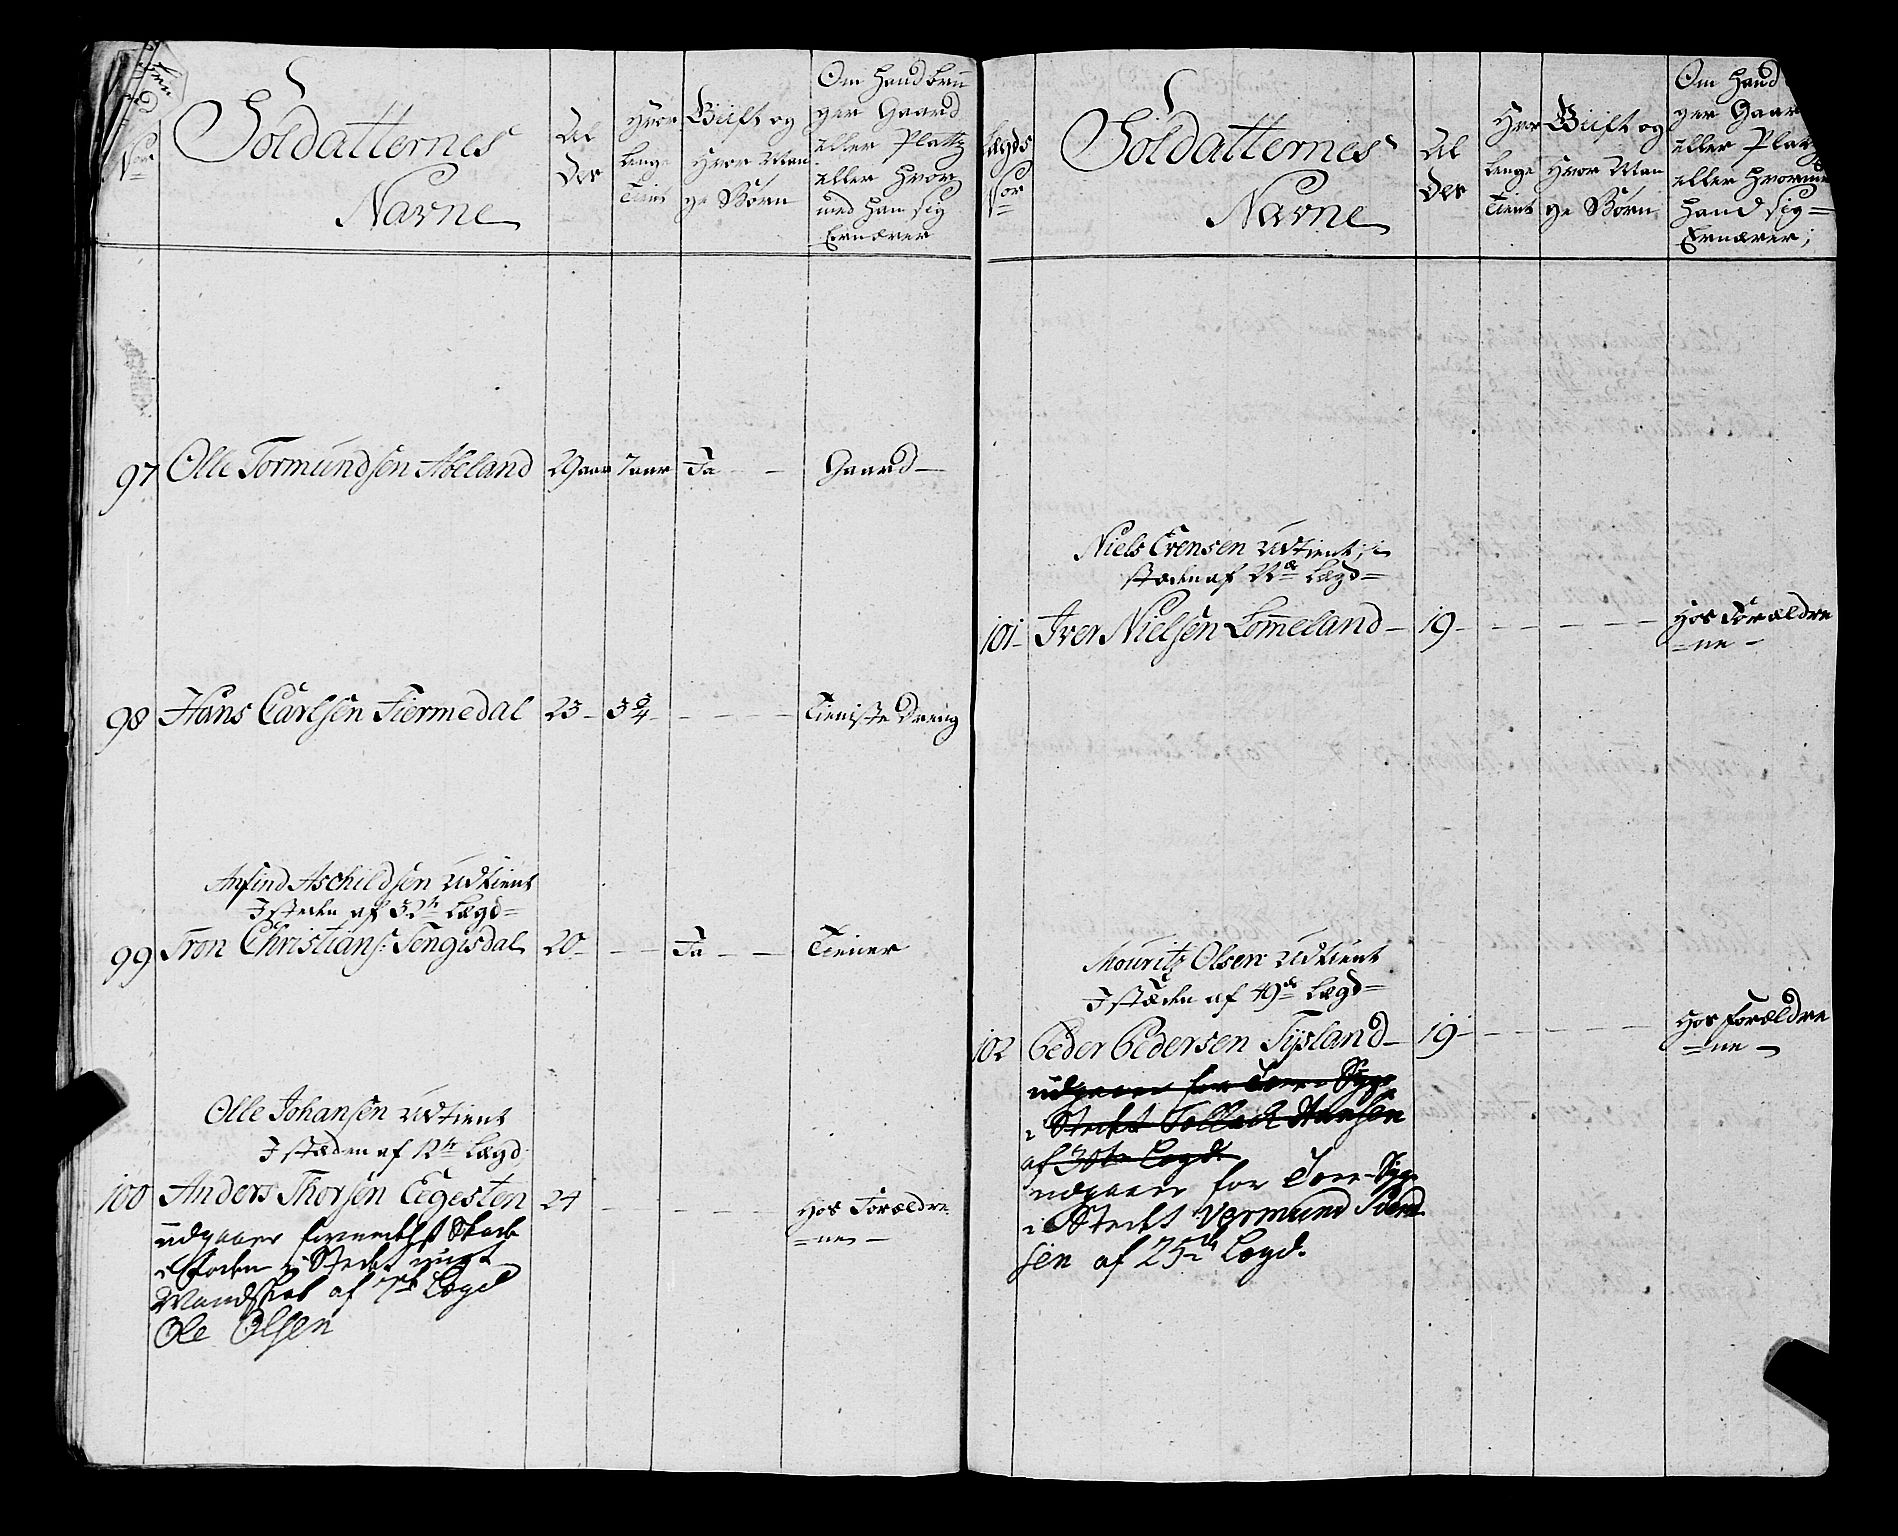 Nor
Soldatternes
Navne
Al
der
Hvor
lenge
Tient
Giift og
Hvor Man
ge Børn
Om hand bru
ger Gaard
eller Platz
eller Hvor
med han sig
Ernærer
97 Olle Tormundsen Aaeland 29 aar 7 aar Ja - - Gaard -
98 Hans Carlsen Fiermedal 23 - 3 3/4 - - - - Tieniste Dreng
Anfind Aschildsen Udtient
I steden af 32te Lægd =
99 Tron Christians: Tengisdal 20 - - - Ja - - Tiener
Olle Johansen Udtient
I stæden af 12te Lægd
100 Anders Thorsen Eegesten 24 - - - - Hos Forældre
= ne -
udgaaer formedelst Skade
i Foden i Stedet nyt
Mandskab af 7de Lægd
Ole Olsen
Lægds
Nor
Soldatternes
Navne
Al
der
Hvor
lenge
Tient
Giift og
Hvor Man
ge Børn
Om hand
ger Gaar
eller Platz
eller Hvorme
hand sig =
Ernærer;
Niels Evensen Udtient; i
stæden af 22de Lægd =
101 - Iver Nielsen Lomeland - 19 - - - - - - Hos Forældre
= ne -
Mouritz Olsen Udtient
I stæden af 49de Lægd =
102 Peder Pedersen Tysland - 19 - - - - - - Hos Forældre
= ne -
udgaaer for Tære Syge
i Stedet Tollack Hansen
af 30te Lægd
udgaaer for Tære Syge
i Stedet Vermund
sen af 25de Lægd.